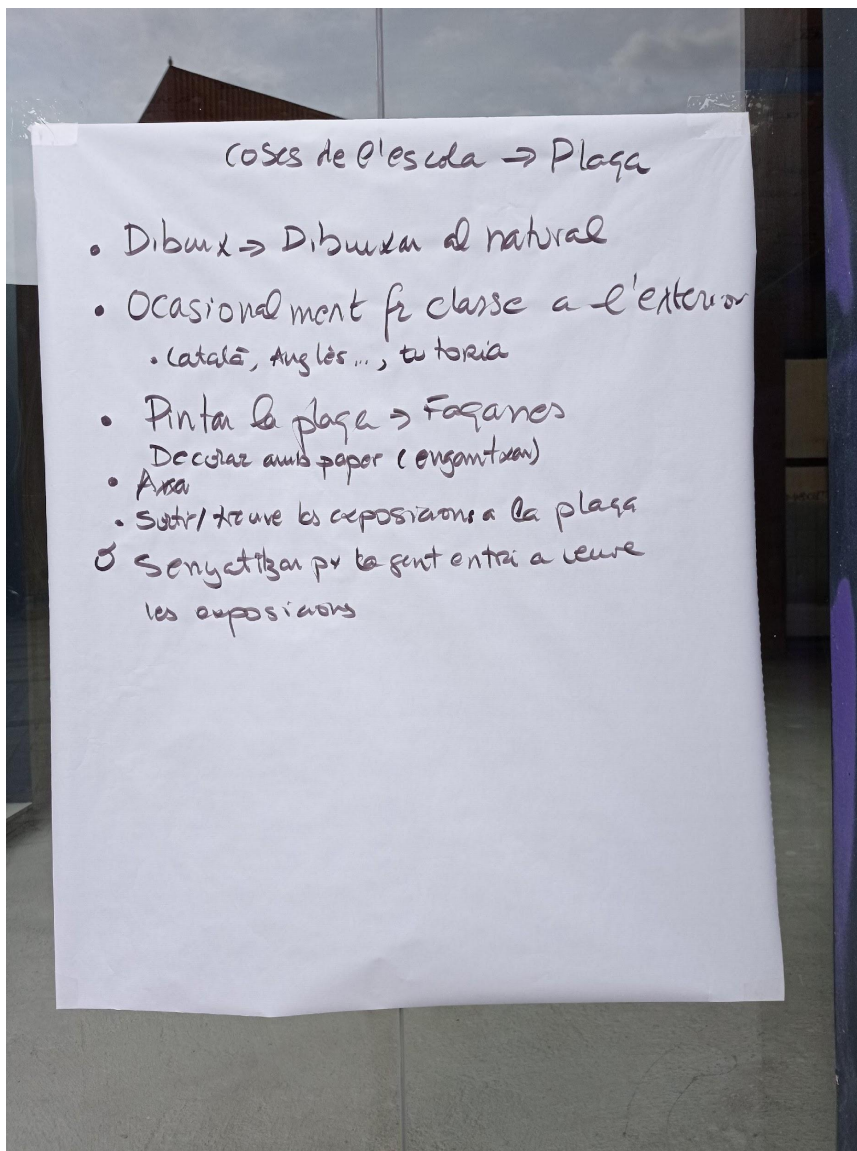 Coses de l'escola → Plaça
• Dibuix → Dibuixar al natural
• Ocasionalment fer classe a l'exterior
• Català, Anglès..., tutoria
• Pintar la plaça → Façanes
Decorar amb paper (enganxar)
•
• Sortir/treure les exposicions a la plaça
• Senyalitzar per la gent entri a veure
les exposicions